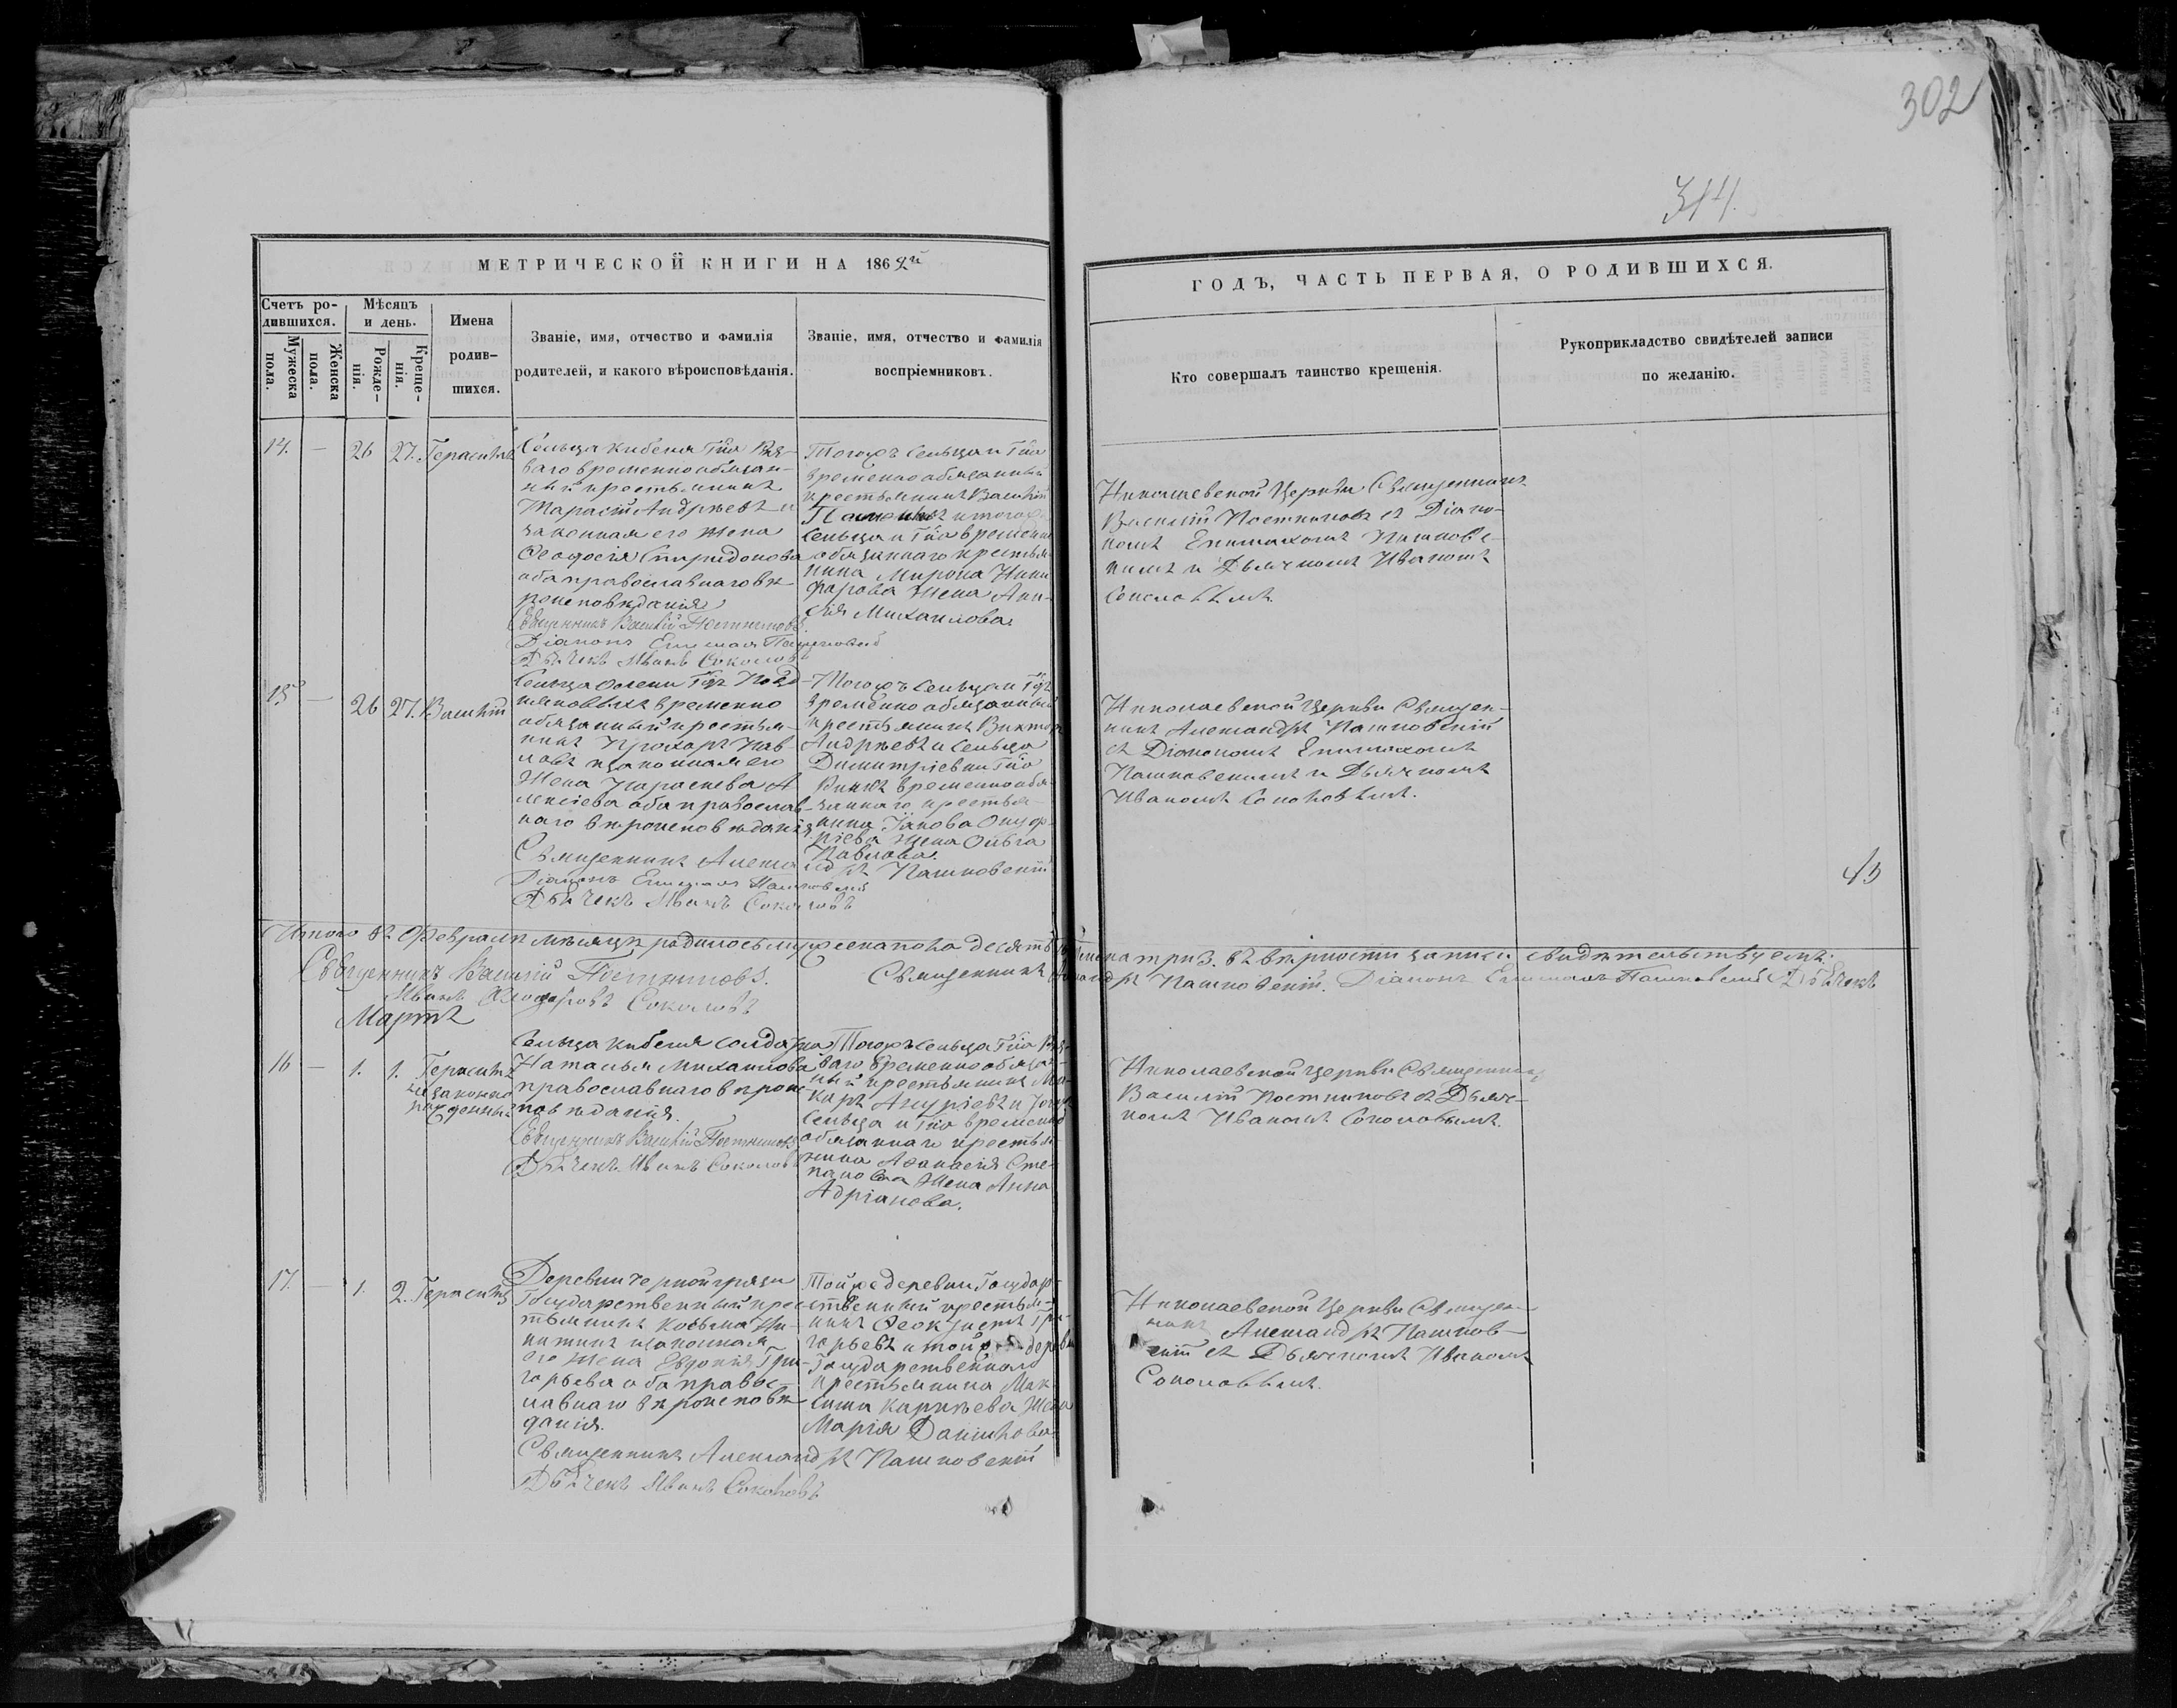 302
314.
МЕТРИЧЕСКОЙ КНИГИ НА 1862й
ГОДЪ, ЧАСТЬ ПЕРВАЯ, О РОДИВШИХСЯ.
Счетъ ро-
дившихся.
Мужеска
пола.
Женска
пола.
Мѣсяцъ
и день.
Рожде-
нія.
Креще-
нія.
Имена
родив-
шихся.
Званіе, имя, отчество и фамилія
родителей, и какого вѣроисповѣданія.
Званіе, имя, отчество и фамилія
воспріемниковъ.
Кто совершалъ таинство крещенія.
Рукоприкладство свидѣтелей записи
по желанію.
14. — 26 27. Герасимъ
Сельца Кибеня Гна
ваго временно обязан-
ный крестьянинъ
Тарасій Андреевъ и
законная его жена
Ѳеодосія Спиридонова
оба православнаго вѣ-
роисповѣданія
Священникъ Василій Постниковъ
Діаконъ Епимахъ Пашковскій
Дьячекъ Иванъ Соколовъ
Тогожъ сельца и Гна
временно обязанный
крестьянинъ Василій
и тогожъ
сельца и Гна временно
обязаннаго крестья-
нина Мирона Ники
форова жена Ани-
сія Михаилова.
Николаевской Церкви Священникъ
Василій Постниковъ съ Діако-
номъ Епимахомъ Пашковс-
кимъ и Дьячкомъ Иваномъ
Соколовымъ.
15 — 26 27. Василій
Сельца
временно
обязанный крестья-
нинъ Прохоръ Пав-
ловъ и законная его
жена Параскева А
лексіева оба православ-
наго вѣроисповѣданія
Священникъ Александръ Пашковскій
Діаконъ Епимахъ Пашковскій
Дьячекъ Иванъ Соколовъ
Тогожъ сельца и Гдъ
временно обязанный
крестьянинъ Викторъ
Андреевъ и сельца
Димитріевки Гна
временно обя-
заннаго крестья-
нина Іакова Онуф-
ріева жена Ольга
Павлова.
Николаевской Церкви Священ-
никъ Александръ Пашковскій
съ Діакономъ Епимахомъ
Пашковскимъ и Дьячкомъ
Иваномъ Соколовымъ.
Итого въ Февралѣ мѣсяцѣ родилось мужеска пола десять
женска три 3. въ вѣрности записи свидѣтельствуемъ:
Священникъ Василій Постниковъ.
Священникъ Александръ Пашковскій. Діаконъ Епимахъ Пашковскій Дьячекъ
Иванъ Соколовъ
Мартъ
16 — 1. 1. Герасимъ
незаконно
рожденный
Сельца Кибеня солдатка
Наталья Михаилова
православнаго вѣроис-
повѣданія.
Священникъ Василій Постниковъ
Дьячекъ Иванъ Соколовъ
Тогожъ сельца Гна
ваго временно обязан-
ный крестьянинъ Ма-
каръ и тогожъ
сельца и Гна временно
обязаннаго крестья-
нина Аѳанасія Сте-
панова жена Анна
Адріанова.
Николаевской Церкви Священникъ
Василій Постниковъ съ Дьяч-
комъ Иваномъ Соколовымъ.
17. — 1. 2. Герасимъ
Деревни Черной грязи
Государственный крес-
тьянинъ Косьма Ни-
китинъ и законная
его жена Евдокія Гри-
горьева оба правос-
лавнаго вѣроисповѣ-
данія.
Священникъ Александръ Пашковскій
Дьячекъ Иванъ Соколовъ
Тойже деревни Государ-
ственный крестья-
нинъ Ѳеоктистъ Гри-
горьевъ и тойже деревни
Государственнаго
крестьянина Мак
сима Карпѣева жена
Марія Данилова
Николаевской Церкви Священ-
никъ Александръ Пашков-
скій съ Дьячкомъ Иваномъ
Соколовымъ.